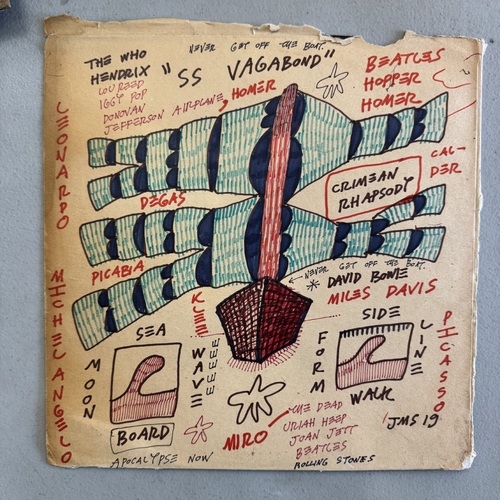 NEVER GET OFF THE BOAT.
THE WHO
HENDRIX
"SS VAGABOND"
LOU REED
IGGY POP
DONOVAN
JEFFERSON AIRPLANE,
HOMER
BEATLES
HOPPER
HOMER
LEONARDO
CAL-
DER
CRIMEAN
RHAPSODY
DEGAS
PICABIA
NEVER GET OFF THE BOAT.
DAVID BOWIE
MILES DAVIS
MICHELANGELO
KLEE
SEA
MOON
WAVEEEEEE
BOARD
APOCALYPSE NOW
SIDE
FORM
LINE
WALK
PICASSO
JMS 19
MIRO
THE DEAD
URIAH HEEP
JOAN JETT
BEATLES
ROLLING STONES